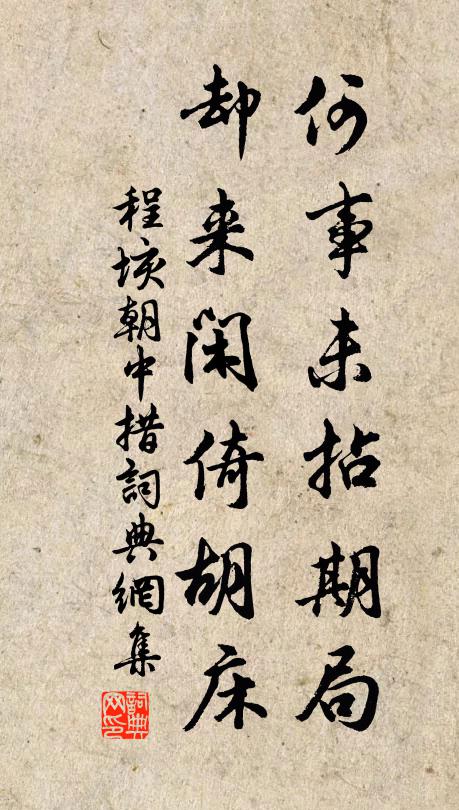 何事未拈期局
却来閑倚胡床
程垓朝中措詞典網集
詞典网印